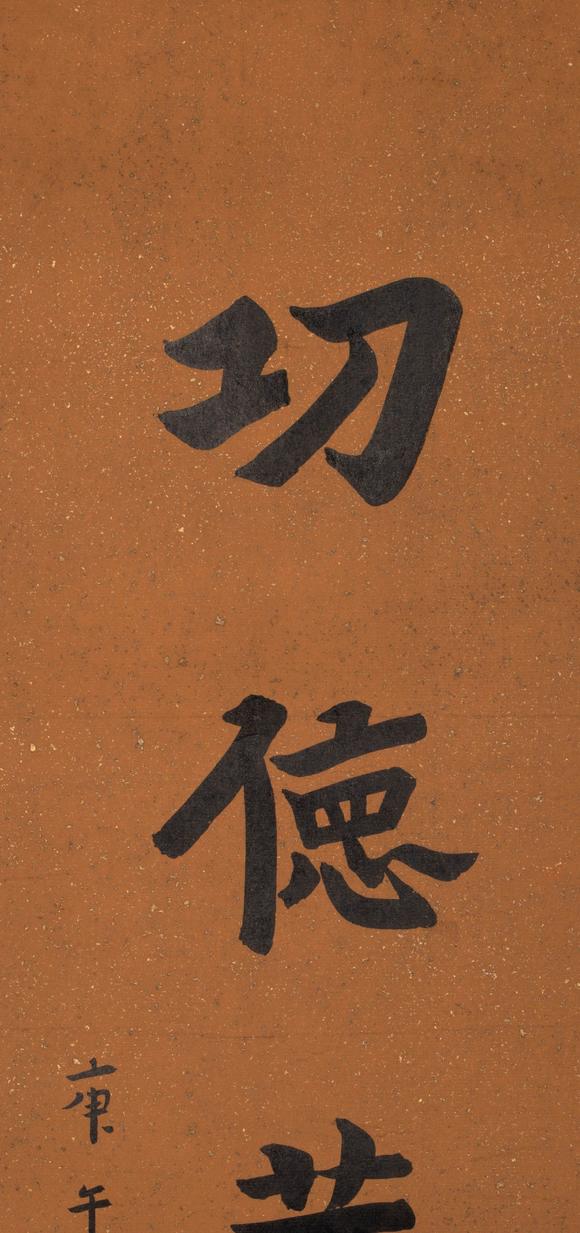 功德
庚午